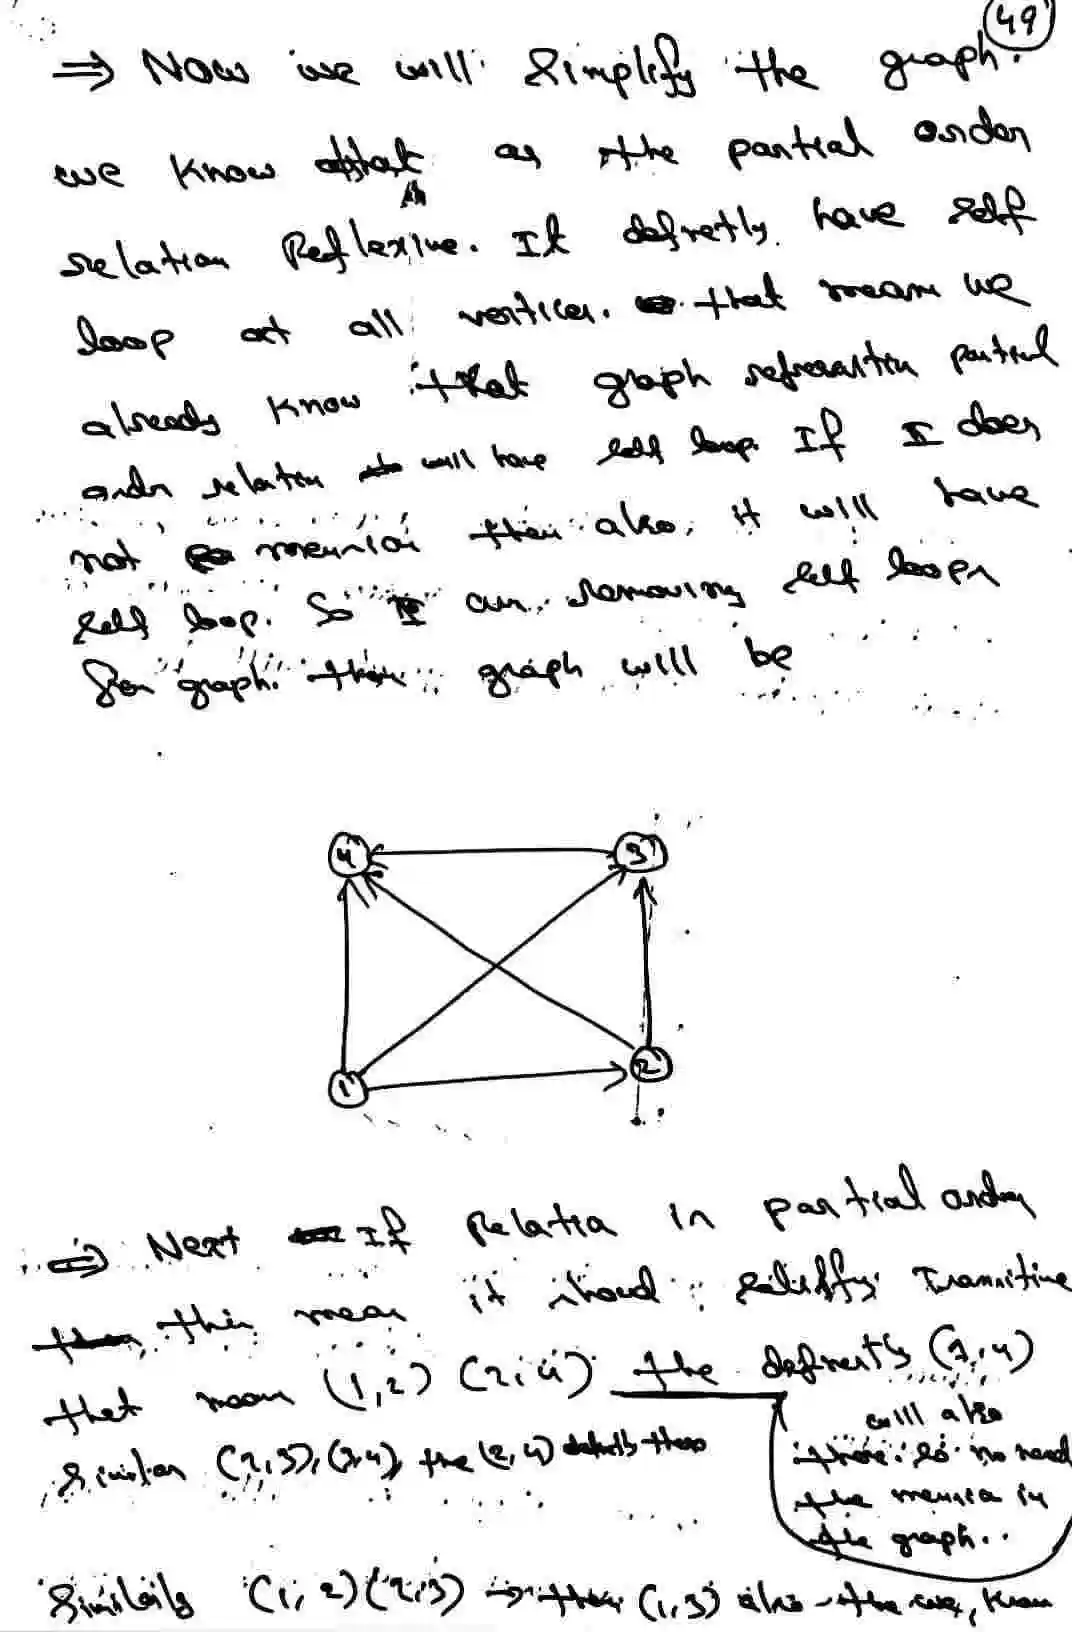 49
⇒ Now we will simplify the graph.
we know that as the partial order
relation Reflexive. It defnetly have self
loop at all vertices. that mean we
already know that graph partial
order relation will have self loop. If I does
not then also, it will have
self loop. So I am removing self loops
for graph. then graph will be
4 3
1 2
⇒ Next If Relatia in partial order
this mean it shoud satisfy Transitive
that mean (1,2) (2,4) the (1,4)
will also
there. so no need
the in
the graph..
Similar (2,3), (3,4), the (2,4) there
Similarly (1,2) (2,3) → then (1,3) also the we, know